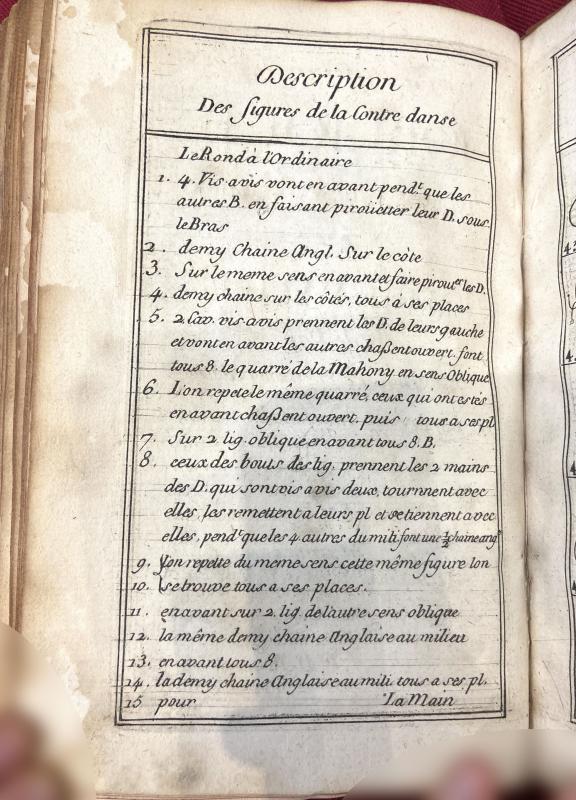 Description
Des figures de la Contre danse
Le Rond à l'Ordinaire
1. 4. Vis avis vont en avant pend.t que les
autres B. en faisant piroüetter leur D. sous
le Bras
2. demy Chaine Angl. Sur le côte
3. Sur le meme sens en avant et faire pirouter les D.
4. demy chaine sur les côtés, tous a ses places
5. 2. Cav. vis avis prennent les D. de leurs gauche
et vont en avant les autres chaßent ouvert. font
tous 8. le quarré de la Mahony en sens Oblique
6. L'on repete le même quarré, ceux qui ont estés
en avant chaßent ouvert. puis tous a ses pl
7. Sur 2. lig. oblique en avant tous 8. B.
8. ceux des bouts des lig. prennent les 2 mains
des D. qui sont vis a vis deux, tournnent avec
elles, les remettent a leurs pl et se tiennent avec
elles, pend.t que les 4. autres du mili font une ½ chaine ang
9. l'on repette du meme sens cette même figure lon
10. se trouve tous a ses places.
11. en avant sur 2. lig. de l'autre sens oblique
12. la même demy chaine Anglaise au milieu
13. en avant tous 8.
14. la demy chaine Anglaise au mili. tous a ses pl.
15 pour La Main